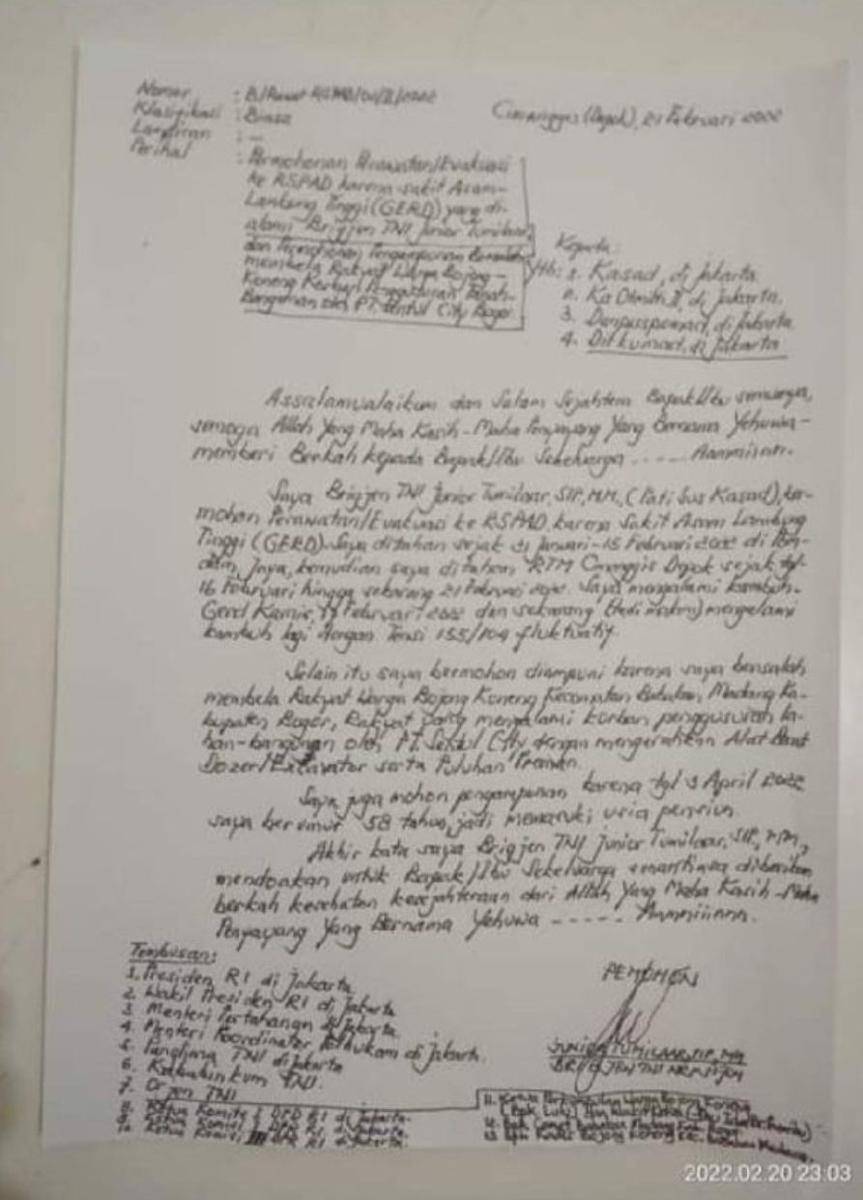 Nomor : B/Rawat-RSPAD/01/II/2022
Klasifikasi : Biasa
Lampiran : —
Perihal : Permohonan Perawatan/Evakuasi
ke RSPAD karena sakit Asam-
Lambung Tinggi (GERD) yang di-
alami Brigjen TNI Junior Tumilaar,
dan Permohonan Pengampunan
membela Rakyat Warga Bojong-
Koneng Korban Penggusuran Tanah-
Bangunan oleh PT. Sentul City Bogor.
Cimanggis (Depok), 21 Februari 2022
Kepada:
Yth: 1. Kasad, di Jakarta
2. Ka Otmilti II, di Jakarta.
3. Danpuspomad, di Jakarta
4. Dirkumad, di Jakarta
Assalamualaikum dan Salam Sejahtera Bapak/Ibu semuanya,
semoga Allah Yang Maha Kasih-Maha Penyayang Yang Bernama Yehuwa-
memberi Berkah kepada Bapak/Ibu Sekeluarga .....
Saya Brigjen TNI Junior Tumilaar, SIP, MM, (Pati Sus Kasad),
mohon Perawatan/Evakuasi ke RSPAD, karena Sakit Asam Lambung
Tinggi (GERD). Saya ditahan sejak 31 Januari-15 Februari 2022 di Pom-
dam Jaya, kemudian saya ditahan RTM Cimanggis Depok sejak tgl-
16 Februari hingga sekarang 21 Februari 2022. Saya mengalami kambuh-
Gerd Kamis, Februari 2022 dan sekarang mengalami
kambuh lagi dengan Tensi 155/104 fluktuatif.
Selain itu saya bermohon diampuni karena saya bersalah
membela Rakyat Warga Bojong Koneng Kecamatan Babakan Madang Ka-
bupaten Bogor, Rakyat yang mengalami korban penggusuran la-
han-bangunan oleh PT. Sentul City dengan mengerahkan Alat Berat
Dozer/Excavator serta Puluhan Preman.
Saya juga mohon pengampunan karena tgl 3 April 2022
saya berumur 58 tahun, jadi memasuki usia pensiun.
Akhir kata saya Brigjen TNI Junior Tumilaar, SIP, MM,
mendoakan untuk Bapak/Ibu Sekeluarga semuanya diberikan
berkah kesehatan kesejahteraan dari Allah Yang Maha Kasih-Maha
Penyayang Yang Bernama Yehuwa ----- Aammiiinn.
Tembusan:
1. Presiden RI di Jakarta
2. Wakil Presiden RI di Jakarta
3. Menteri Pertahanan di Jakarta
4. Menteri Koordinator Polhukam di Jakarta.
5. Panglima TNI di Jakarta
6. Kababinkum TNI.
7. Orjen TNI
8. Ketua Komite I DPD RI di Jakarta.
9. Ketua Komisi I DPR RI di Jakarta.
10. Ketua Komisi III DPR RI di Jakarta.
PEMOHON
JUNIOR TUMILAAR, SIP, MM
BRIGJEN TNI
11. Ketua Warga Bojong Koneng
12. Bpk. Camat Babakan Madang Kab. Bogor
13. Bojong Koneng Kec. Babakan Madang.
2022.02.20 23:03